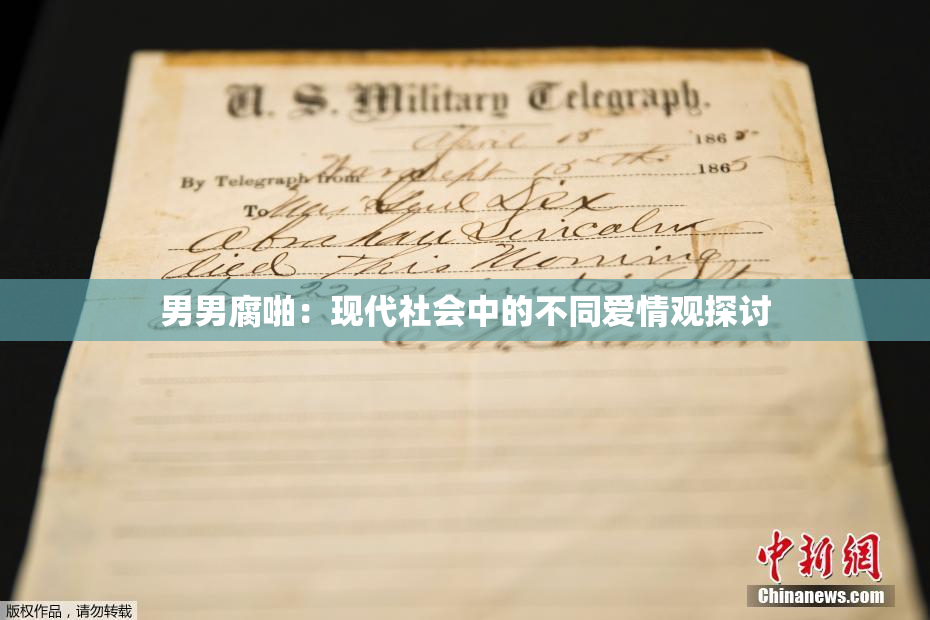 U. S. Military Telegraph.
April 15 1865
By Telegraph from War Dept 15th 1865
To Maj Genl Dix
Abraham Lincoln
died This Morning
at 22 minutes after
男男腐啪：现代社会中的不同爱情观探讨
E. M. Stanton
中新网
Chinanews.com
版权作品，请勿转载